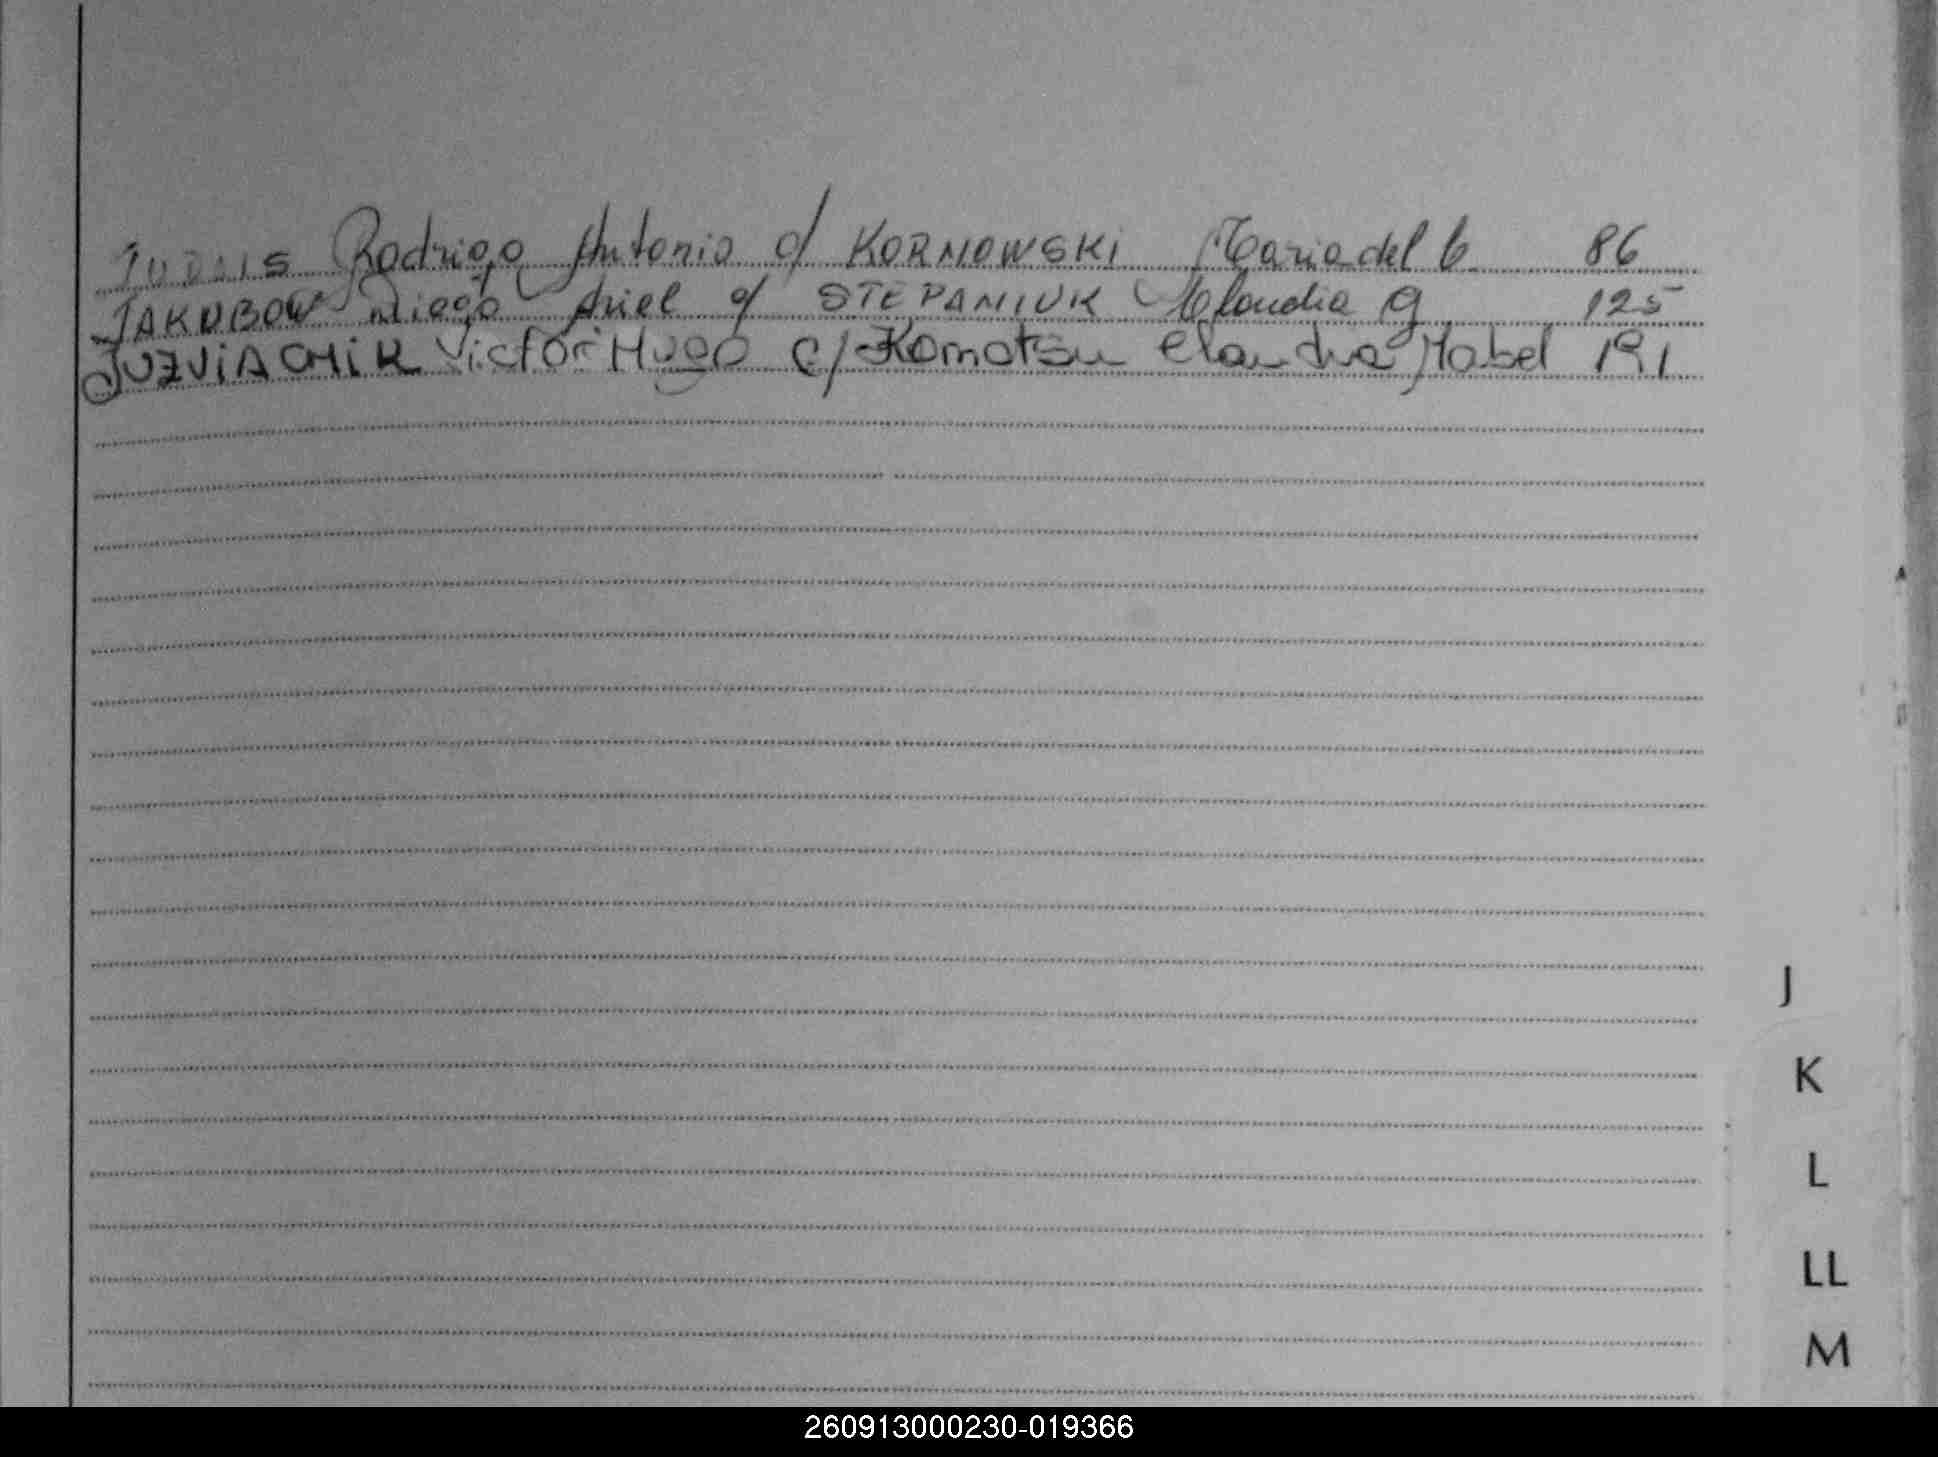 Rodrigo Antonio c/ KORNOWSKI Maria del C 86
JAKUBOW Diego Ariel c/ STEPANIUK Claudia G 125
JUZVIACHIK Victor Hugo c/ Komatsu Claudia Mabel 191
J
K
L
LL
M
260913000230-019366